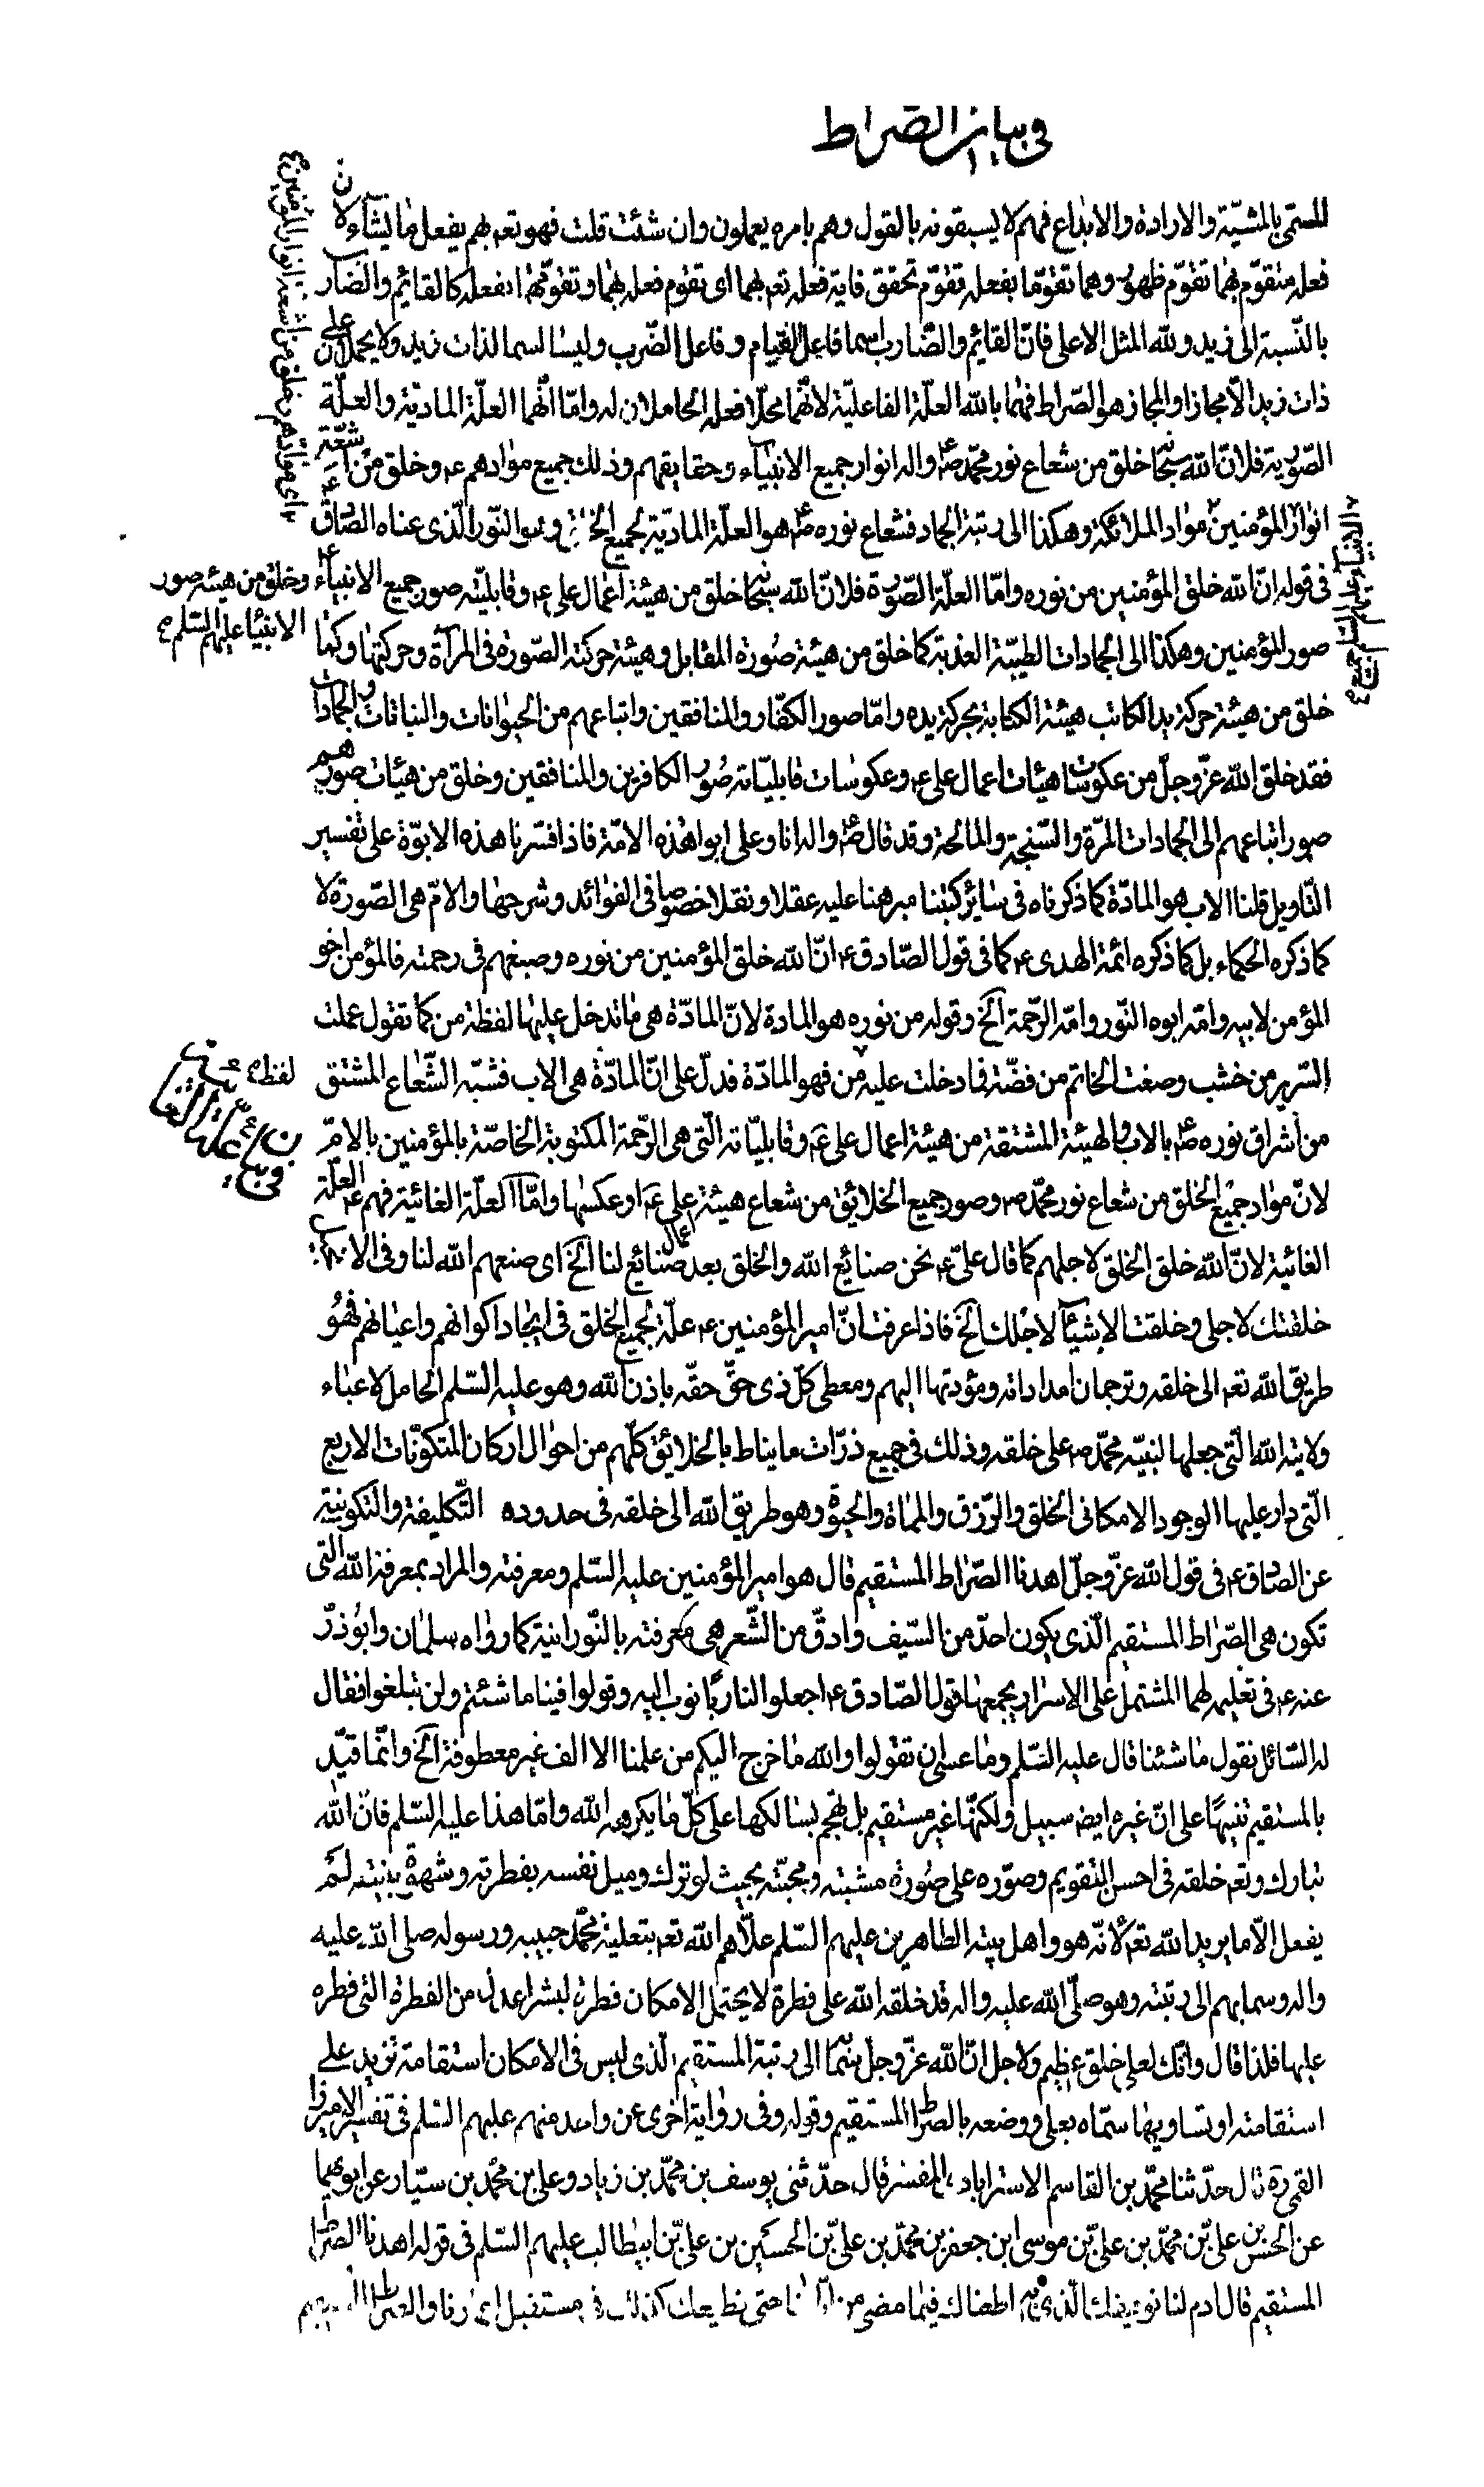 في بيان الصراط
للمسمّى بالمشيّة والارادة والابداع فهم لا يسبقونه بالقول وهم بامره يعملون وان شئت قلت فهو تعه بهم يفعل ما يشآء لان
فعله متقوّم بهما تقوّم ظهور وهما تقوّما بفعله تقوّم تحقق فاية فعله تعه بهما اى تقوم فعله بهما وتقوّمهما بفعله كالقائم والضارب
بالنّسبة الى زيد ولله المثل الاعلى فانّ القائم والضّارب اسما فاعل القيام وفاعل الضّرب وليسا اسما لذات زيد ولا يحملان على
ذات زيد الّا مجازا والمجاز هو الصّراط فهما بالله العلّة الفاعليّة لانّهما محلّا فعله الحاملان له وامّا انّهما العلّة الماديّة والعلّة
الصّوريّة فلانّ الله سبحانه خلق من شعاع نور محمّد ص واله انوار جميع الانبيآء وحقايقهم وذلك جميع موادهم ع وخلق من اشعّة
انوار المؤمنين مواد الملائكة وهكذا الى رتبة الجماد فشعاع نوره ص هو العلّة الماديّة لجميع الخلق وهو النّور الّذى عناه الصّادق ع
فى قوله انّ الله خلق المؤمنين من نوره وامّا العلّة الصّوريّة فلانّ الله سبحانه خلق من هيئة اعمال على ع وقابليّته صور جميع الانبيآء ع وخلق من هيئة صور
الانبياء عليهم السّلم
صور المؤمنين وهكذا الى الجمادات الطيّبة العذبة كما خلق من هيئة صورة المقابل وهيئة حركته الصّورة فى المرآة وحركتها وكما
خلق من هيئة حركة يد الكاتب هيئة الكتابة بحركة يده وامّا صور الكفّار والمنافقين واتباعهم من الحيوانات والنباتات والجمادات
فقد خلق الله عزّ وجلّ من عكوسات هيئات اعمال على ع وعكوسات قابليّاته صور الكافرين والمنافقين وخلق من هيئات صورهم
صور اتباعهم الى الجمادات المرّة والسّبخة والمالحة وقد قال ص واله انا وعلى ابوا هذه الامّة فاذا فسّرنا هذه الابوّة على تفسير
التّاويل قلنا الاب هو المادّة كما ذكرناه فى سائر كتبنا مبرهنا عليه عقلا ونقلا خصوصا فى الفوائد وشرحها والامّ هى الصّورة لا
كما ذكره الحكماء بل كما ذكره ائمّة الهدى ع كما فى قول الصّادق ع انّ الله خلق المؤمنين من نوره وصبغهم فى رحمته فالمؤمن اخو
المؤمن لابيه وامّه ابوه النّور وامّه الرّحمة الخ وقوله من نوره هو المادة لانّ المادّة هى ما تدخل عليها لفظة من كما تقول عملت
السّرير من خشب وصغت الخاتم من فضّة فما دخلت عليه من فهو المادّة فدلّ على انّ المادّة هى الاب فشبّه الشّعاع المشتق
لفظه
من اشراق نوره ص بالاب والهيئة المشتقة من هيئة اعمال على ع وقابليّاته الّتى هى الرّحمة المكتوبة الخاصّة بالمؤمنين بالامّ
لانّ مواد جميع الخلق من شعاع نور محمّد ص وصور جميع الخلائق من شعاع هيئة اعمال على ع او عكسها وامّا العلّة الغائية فهم ع العلّة
الغائية لانّ الله خلق الخلق لاجلهم كما قال علىّ ع نحن صنائع الله والخلق بعد صنائع لنا الخ اى صنعهم الله لنا وفى الانجيل
خلقتك لاجلى وخلقت الاشيآء لاجلك الخ فاذا عرفت انّ امير المؤمنين ع علّة لجميع الخلق فى ايجاد اكوانهم واعيانهم فهو
طريق الله تعه الى خلقه وترجمان امداداته ومؤديها اليهم ومعطى كلّ ذى حقّ حقّه باذن الله وهو عليه السّلم الحامل لاعباء
ولاية الله الّتى جعلها لنبيّه محمّد ص على خلقه وذلك فى جميع ذرّات ما يناط بالخلائق كلّهم من احوال اركان المتكوّنات الاربع
الّتى دار عليها الوجود الامكانى الخلق والرّزق والمماة والحيوة وهو طريق الله الى خلقه فى حدوده التّكليفة والتكوينية
عن الصّادق ع فى قول الله عزّ وجلّ اهدنا الصّراط المستقيم قال هو امير المؤمنين عليه السّلم ومعرفته والمراد بمعرفة الله الّتى
تكون هى الصّراط المستقيم الّذى يكون احدّ من السّيف وادقّ من الشّعر هى معرفته بالنّورانية كما رواه سلمان وابوذرّ
عنه ع فى تعليمه لهما المشتمل على الاسرار يجمعها قول الصّادق ع اجعلوا لنا ربّا نوب اليه وقولوا فينا ما شئتم ولن تبلغوا فقال
له السّائل نقول ما شئنا قال عليه السّلم وما عسى ان تقولوا والله ما خرج اليكم من علمنا الا الف غير معطوفة الخ وانّما قيّد
بالمستقيم تنبيهًا على انّ غيره ايضه سبيل ولكنّها غير مستقيم بل تهجم بسالكها على كلّ ما يكرهه الله وامّا هذا عليه السّلم فانّ الله
تبارك وتعه خلقه فى احسن التقويم وصوّره على صورة مشيته ومحبّته بحيث لو ترك وميل نفسه بفطرته وشهوة بنيته لم
يفعل الّا ما يريد الله تعه لانّه هو واهل بيته الطاهرين عليهم السّلم علّاهم الله تعه بتعلية محمّد حبيبه ورسوله صلى الله عليه
واله وسما بهم الى رتبته وهو صلّى الله عليه واله قد خلقه الله على فطرة لا يحتمل الامكان فطرة لبشر اعدل من الفطرة الّتى فطره
عليها فلذا قال وانّك لعلى خلق عظيم ولاجل انّ الله عزّ وجلّ بهم الى رتبة المستقيم الّذى ليس فى الامكان استقامة تزيد على
استقامته او تساويها سمّاه بعلى ووضعه بالصراط المستقيم وقوله وفى رواية اخرى عن واحد منهم عليهم السّلم فى تفسير
القمى ره قال حدّثنا محمّد بن القاسم الاسترابادى المفسّر قال حدّثنى يوسف بن محمّد بن زياد وعلى بن محمّد بن سيّار عن ابويهما
عن الحسن بن علىّ بن محمّد بن علىّ بن موسى ابن جعفر بن محمّد بن علىّ بن الحسين بن علىّ بن ابيطالب عليهم السّلم فى قوله اهدنا الصّراط
المستقيم قال ادم لنا توفيقك الّذى به اطعناك فيما مضى من ايّامنا حتى نطيعك كذلك فى مستقبل اعمارنا والصّراط المستقيم